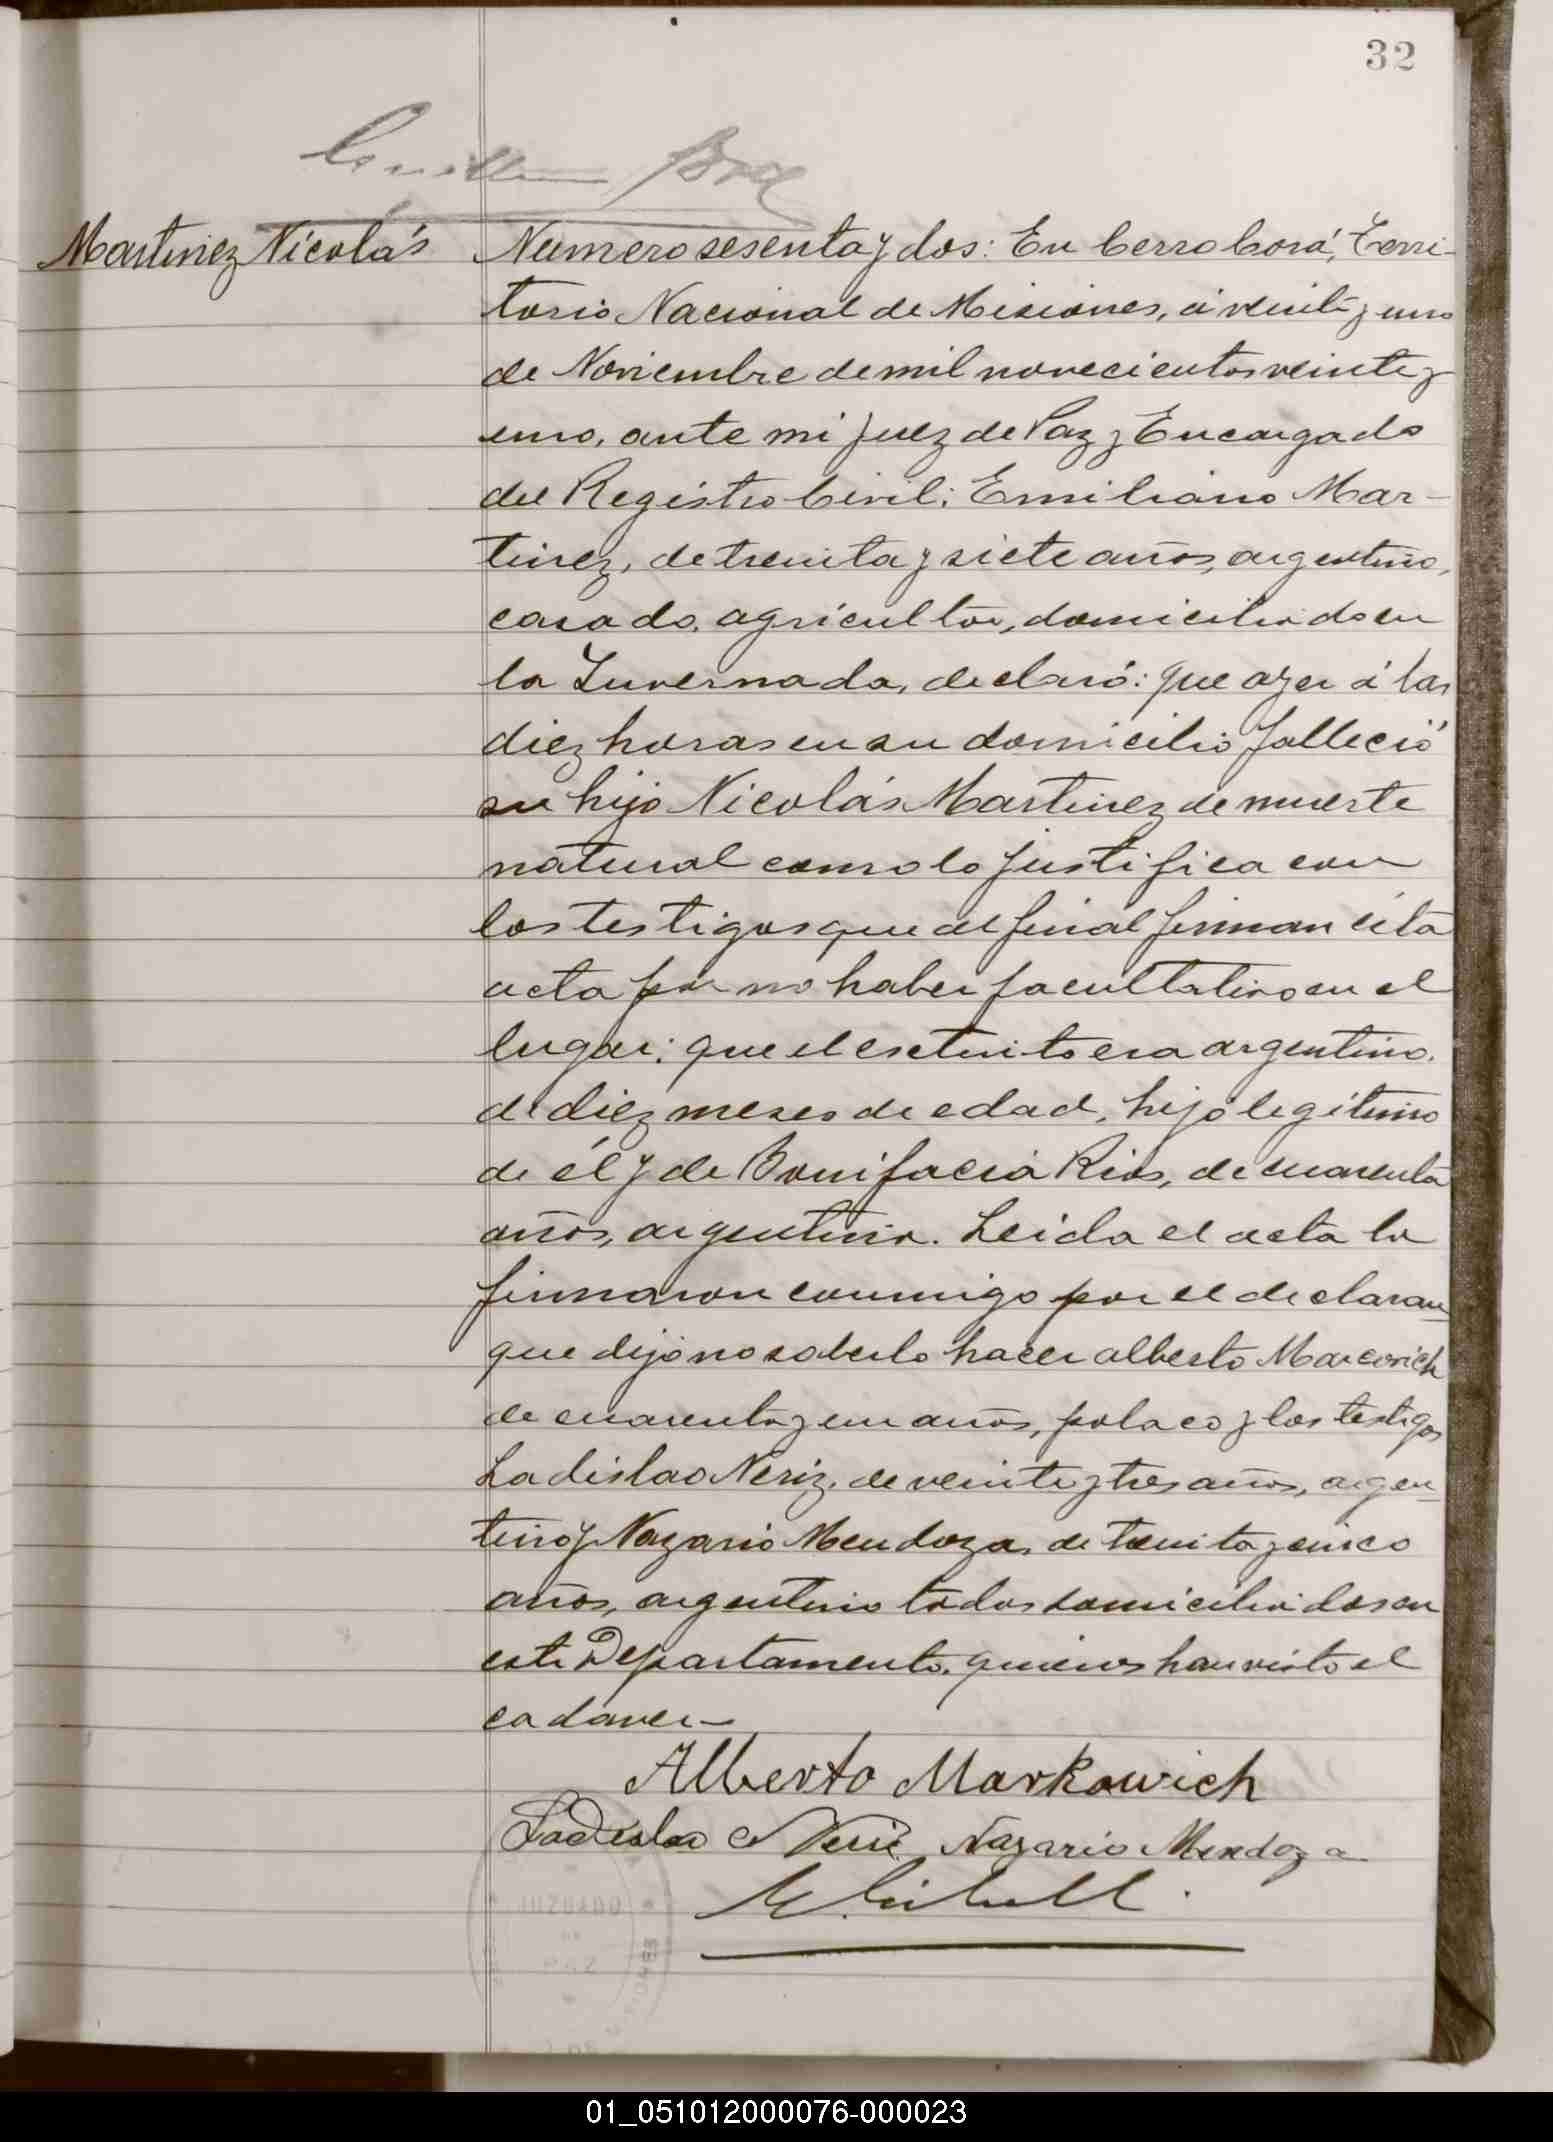 32
Martinez Nicolás
Numero sesenta y dos: En Cerro Corá, Terri-
torio Nacional de Misiones, á veinte y uno
de Noviembre de mil novecientos veinte y
uno, ante mi Juez de Paz y Encargado
del Registro Civil; Emiliano Mar-
tinez, de treinta y siete años, argentino,
casado, agricultor, domiciliado en
la Invernada, declaró: que ayer á las
diez horas en su domicilio falleció
su hijo Nicolás Martinez de muerte
natural como lo justifica con
los testigos que al final firman esta
acta por no haber facultativo en el
lugar; que el esctinto era argentino,
de diez meses de edad, hijo legitimo
de él y de Bonifacia Rios, de cuarenta
años, argentina. Leida el acta la
firmaron conmigo por el declaran
que dijo no saberlo hacer alberto Marcovich
de cuarenta y un años, polaco y los testigos
Ladislao Neriz, de veinte y tres años, argen-
tino y Nazario Mendoza, de treinta y cinco
años, argentino todos domiciliados en
este Departamento, quienes han visto el
cadaver—
Alberto Markowich
Ladislao Neriz Nazario Mendoza
01_051012000076-000023